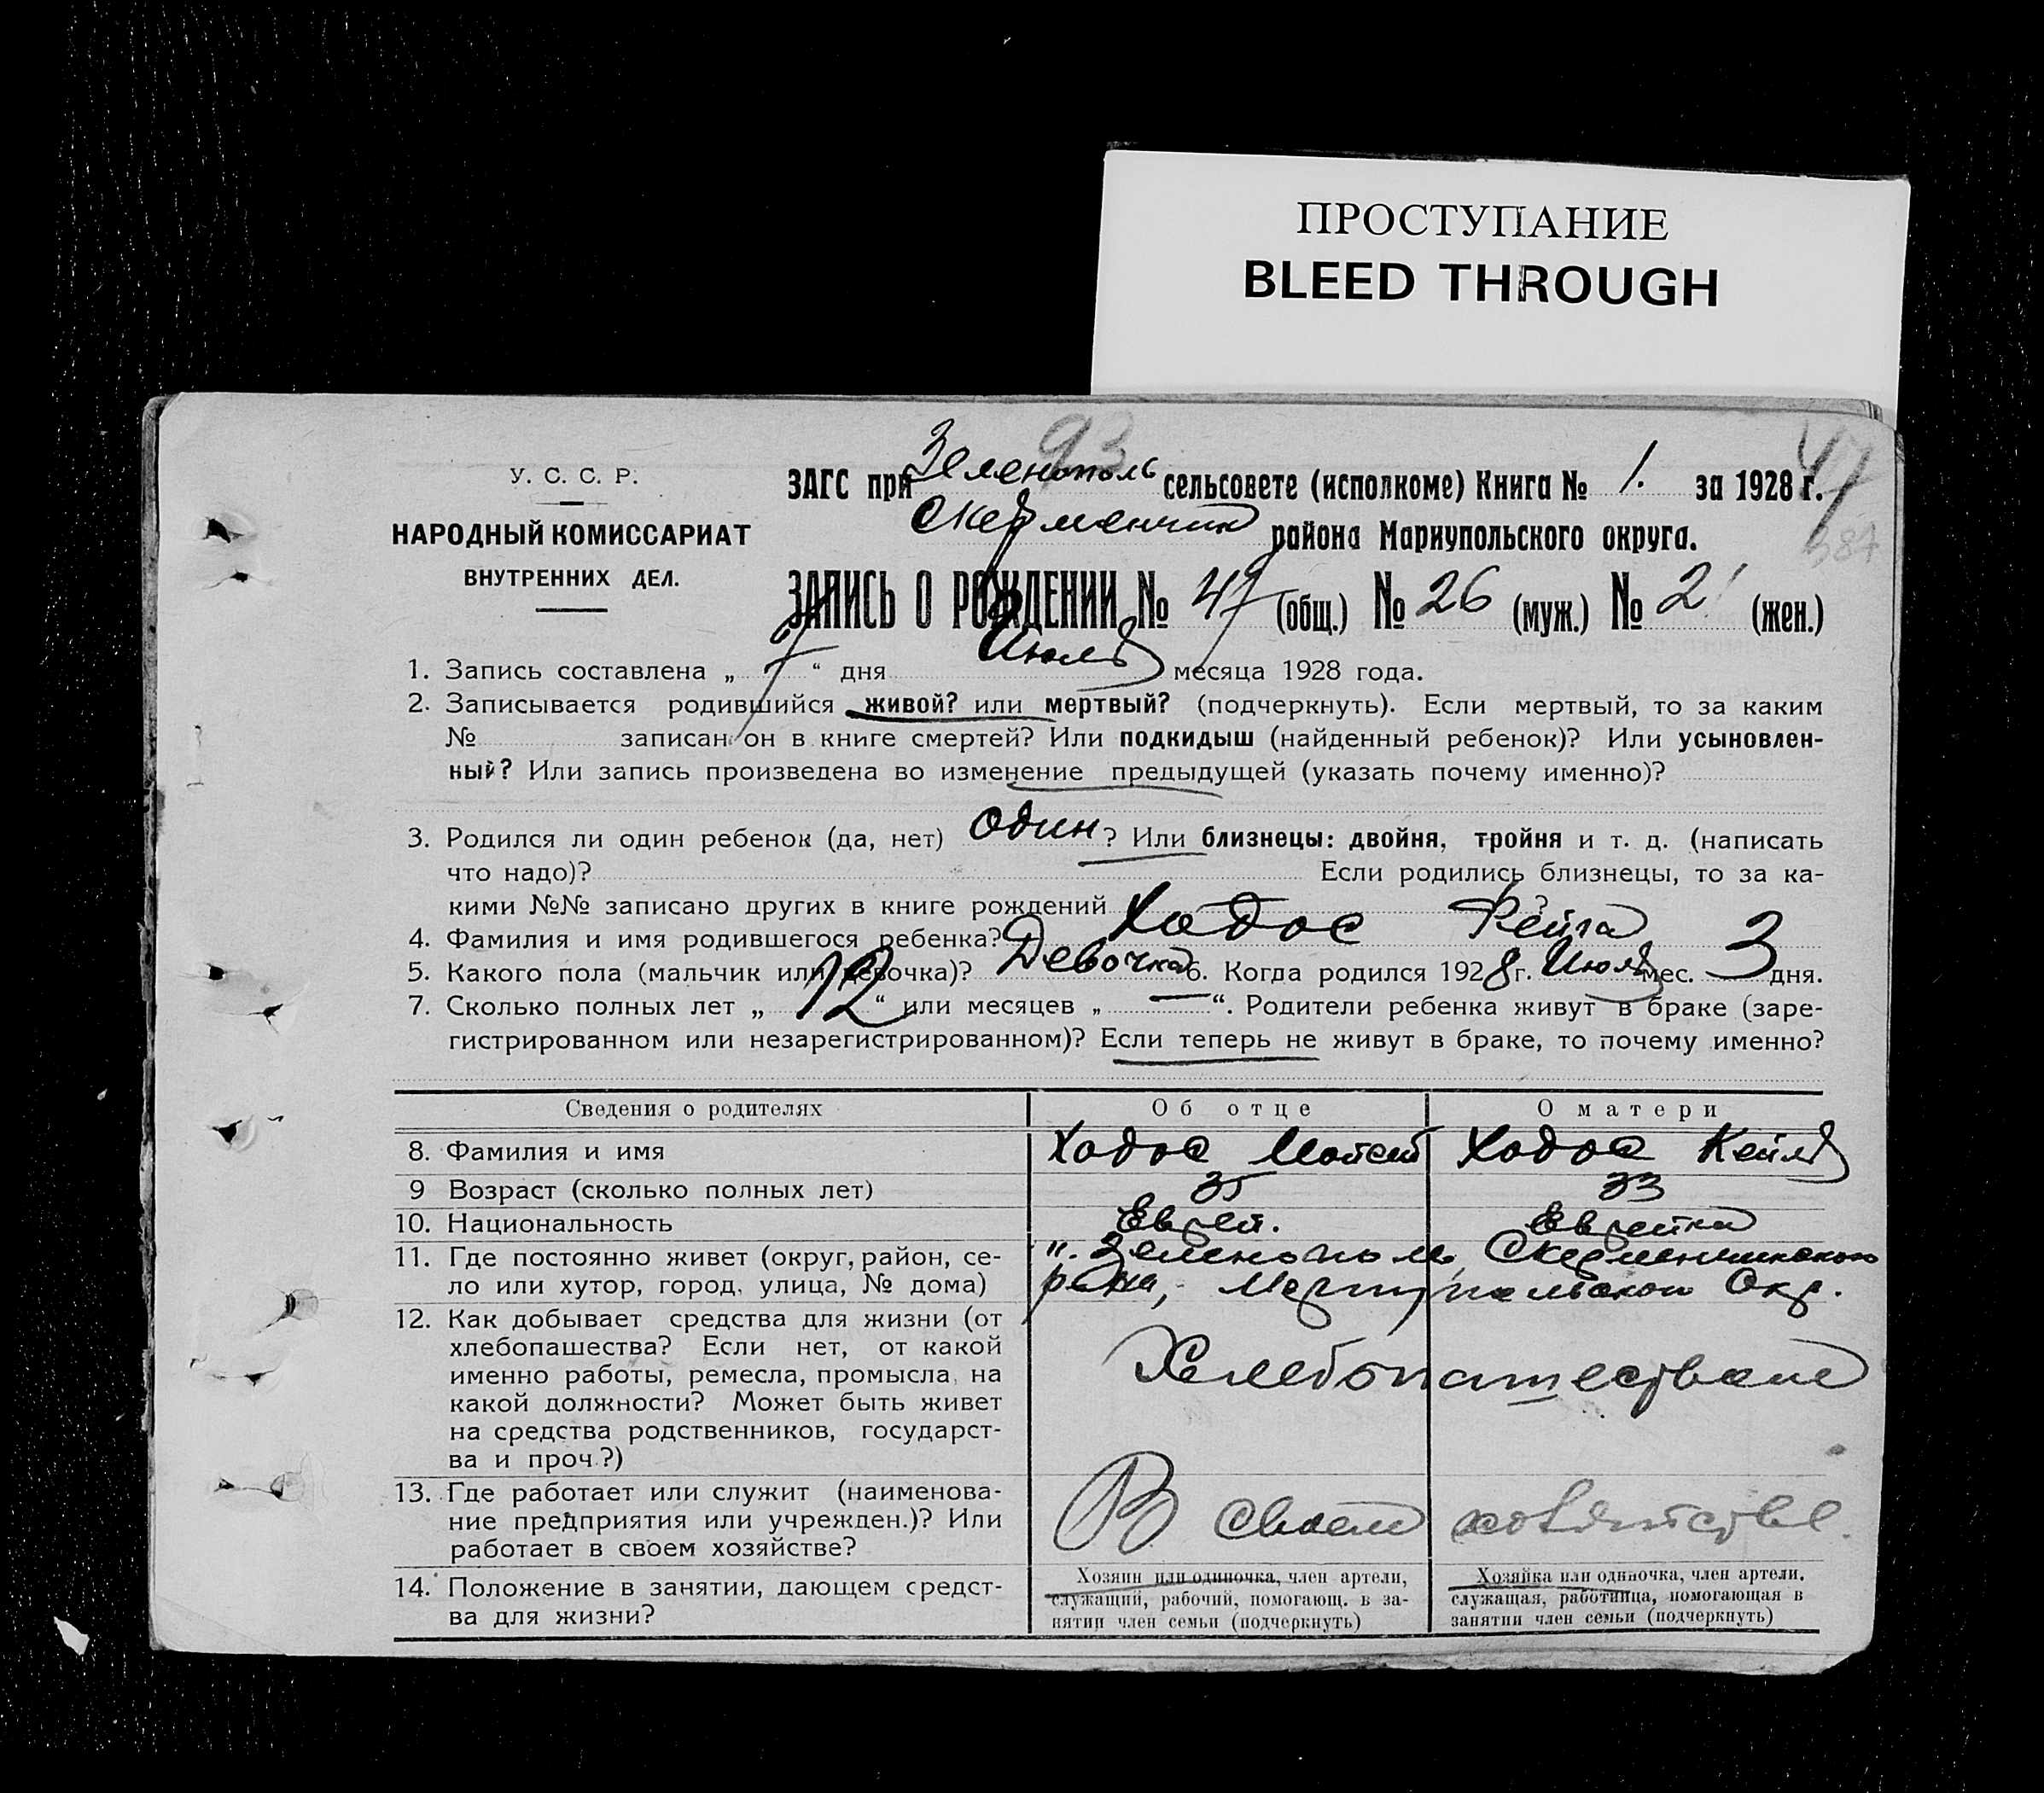 ПРОСТУПАНИЕ
BLEED THROUGH
93
47
У. С. С. Р.
НАРОДНЫЙ КОМИССАРИАТ
ВНУТРЕННИХ ДЕЛ.
ЗАГС при Зеленополь сельсовете (исполкоме) Книга № 1. за 1928 г.
Скерменчик района Мариупольского округа.
ЗАПИСЬ О РОЖДЕНИИ № 47 (общ.) № 26 (муж.) № 21 (жен.)
1. Запись составлена „ 7 “ дня Июль месяца 1928 года.
2. Записывается родившийся живой? или мертвый? (подчеркнуть). Если мертвый, то за каким
№ записан он в книге смертей? Или подкидыш (найденный ребенок)? Или усыновлен-
ный? Или запись произведена во изменение предыдущей (указать почему именно)?
3. Родился ли один ребенок (да, нет) один ? Или близнецы: двойня, тройня и т. д. (написать
что надо)? Если родились близнецы, то за ка-
кими №№ записано других в книге рождений ?
4. Фамилия и имя родившегося ребенка? Ходос Фейга
5. Какого пола (мальчик или девочка)? Девочка 6. Когда родился 1928 г. Июль мес. 3 дня.
7. Сколько полных лет „ 12 “ или месяцев „ — “. Родители ребенка живут в браке (заре-
гистрированном или незарегистрированном)? Если теперь не живут в браке, то почему именно?
Сведения о родителях Об отце О матери
8. Фамилия и имя Ходос Мойсей Ходос Кейля
9 Возраст (сколько полных лет) 35 33
10. Национальность Еврей. Еврейка
11. Где постоянно живет (округ, район, се-
ло или хутор, город, улица, № дома)
Зеленополь, Скерменчикского
р-на, Мариупольской Окр.
12. Как добывает средства для жизни (от
хлебопашества? Если нет, от какой
именно работы, ремесла, промысла, на
какой должности? Может быть живет
на средства родственников, государст-
ва и проч.?)
Хлебопашеством
13. Где работает или служит (наименова-
ние предприятия или учрежден.)? Или
работает в своем хозяйстве?
В своем хозяйстве.
14. Положение в занятии, дающем средст-
ва для жизни?
Хозяин или одиночка, член артели,
служащий, рабочий, помогающ. в за-
нятии член семьи (подчеркнуть)
Хозяйка или одиночка, член артели,
служащая, работница, помогающая в
занятии член семьи (подчеркнуть)